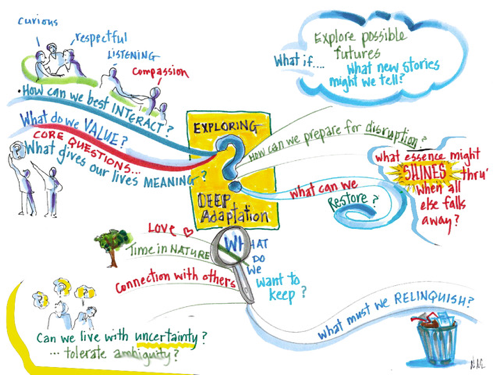 curious
respectful
LISTENING
compassion
• How can we best INTERACT?
What do we VALUE?
CORE QUESTIONS...
What gives our lives MEANING?
EXPLORING
?
DEEP
Adaptation
Explore possible
futures
What if...
What new stories
might we tell?
How can we prepare for disruption?
What can we
Restore?
What essence might
SHINES thru'
when all
else falls
away?
Love
Time in NATURE
Connection with others
WHAT
DO
WE
want to
keep?
What must we RELINQUISH?
? ? ?
Can we live with uncertainty?
... tolerate ambiguity?